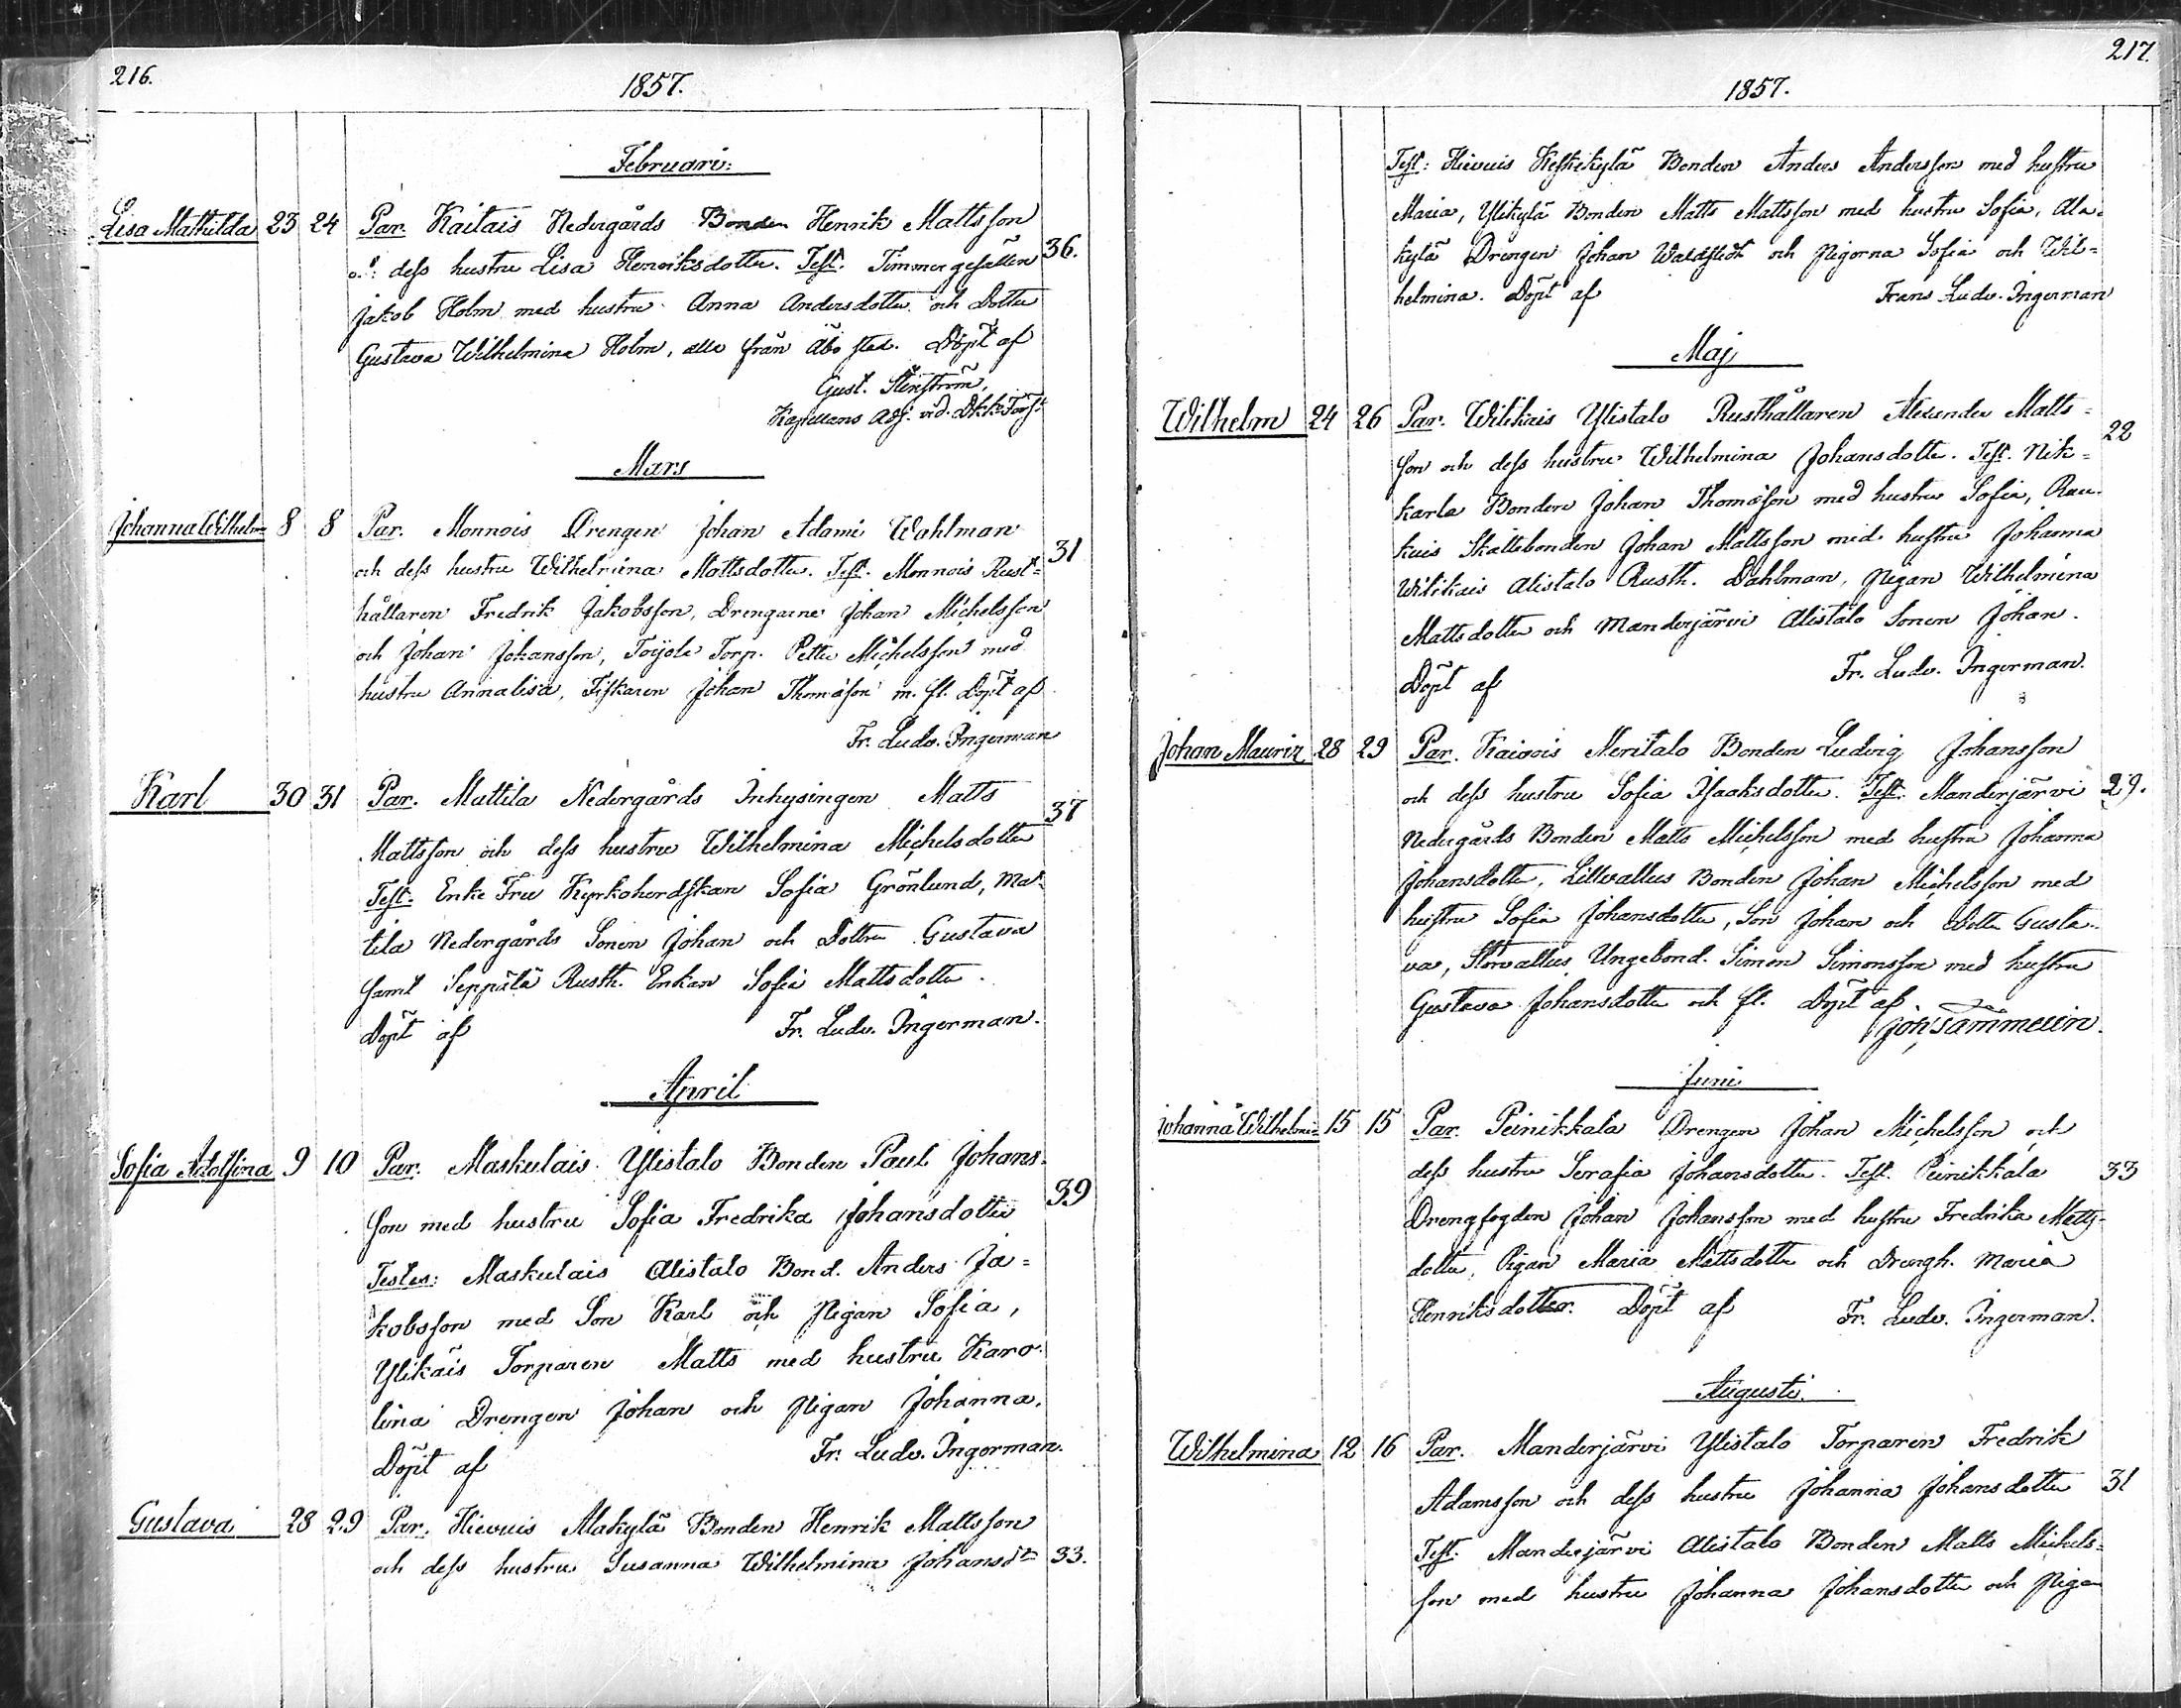 216.
1857.
Februari:
Lisa Mathilda 23 24 Par. Kaitais Nedergårds Bonden Henrik Mattsson
o. dess hustru Lisa Henriksdotter. Test. Timmergesällen 36.
Jakob Holm med hustru Anna Andersdotter och Dotter
Gustava Wilhelmina Holm, alla från Åbo stad. Döpt af
Gust. Stenström,
Kapellans Adj. vid
Mars
Johanna Wilhelm= 8 8 Par. Monnois Drengen Johan Adami Wahlman
och dess hustru Wilhelmina Mattsdotter. Test. Monnois Rust= 31
hållaren Fredrik Jakobsson, Drengarne Johan Michelsson
och Johan Johansson, Toijola Torp. Petter Michelsson med
hustru Annalisa, Fiskaren Johan Thomasson m. fl. Döpt af
Fr. Ludv. Ingerman
Karl 30 31 Par. Mattila Nedergårds Inhysingen Matts 37
Mattsson och dess hustru Wilhelmina Michelsdotter
Test. Enke Fru Kyrkoherdskan Sofia Grönlund, Mat-
tila Nedergårds Sonen Johan och Dottren Gustava
samt Seppälä Rusth. Enkan Sofia Mattsdotter.
Döpt af Fr. Ludv. Ingerman.
April
Sofia Adolfina 9 10 Par. Maskulais Ylistalo Bonden Paul Johans-
son med hustru Sofia Fredrika Johansdotter 39
Testes: Maskulais Alistalo Bond. Anders Ja=
kobsson med Son Karl och Pigan Sofia,
Ylikäis Torparen Matts med hustru Karo-
lina Drengen Johan och Pigan Johanna.
Döpt af Fr. Ludv. Ingerman.
Gustava 28 29 Par. Hievuis Alakylä Bonden Henrik Mattsson
och dess hustru Susanna Wilhelmina Johansdr 33.
217.
1857.
Test: Hievuis Keskikylä Bonden Anders Andersson med hustru
Maria, Ylikylä Bonden Matts Mattsson med hustru Sofia, Ala-
kylä Drengen Johan Waldstedt och Pigorna Sofia och Wil=
helmina. Döpt af Frans Ludv. Ingerman
Maj
Wilhelm 24 26 Par. Wilikais Ylistalo Rusthållaren Alexander Matts= 22
son och dess hustru Wilhelmina Johansdotter. Test. Nik=
karla Bonden Johan Thomasson med hustru Sofia, Rau-
kuis Skattebonden Johan Mattsson med hustru Johanna
Wilikais Alistalo Rusth. Dahlman, Pigan Wilhelmina
Mattsdotter och Manderjärvi Alistalo Sonen Johan.
Döpt af Fr. Ludv. Ingerman.
Johan Mauriz 28 29 Par. Kaivois Meritalo Bonden Ludvig Johansson
och dess hustru Sofia Isaaksdotter. Test. Manderjärvi 29.
Nedergårds Bonden Matts Michelsson med hustru Johanna
Johansdotter, Lillvallus Bonden Johan Michelsson med
hustru Sofia Johansdotter, Son Johan och Dotter Gusta-
va, Storvallus Ungebond. Simon Simonsson med hustru
Gustava Johansdotter och fl. Döpt af
Joh. Sammelin.
Juni
Johanna Wilhelmi= 15 15 Par. Peinikkala Drengen Johan Michelsson och
dess hustru Serafia Johansdotter. Test. Peinikkala 33
Drengfogden Johan Johansson med hustru Fredrika Matts-
dotter, Pigan Maria Mattsdotter och Drengh. Maria
Henriksdotter. Döpt af Fr. Ludv. Ingerman.
Augusti.
Wilhelmina 12 16 Par. Manderjärvi Ylistalo Torparen Fredrik
Adamsson och dess hustru Johanna Johansdotter 31
Test. Manderjärvi Alistalo Bonden Matts Michels=
son med hustru Johanna Johansdotter och Pigan